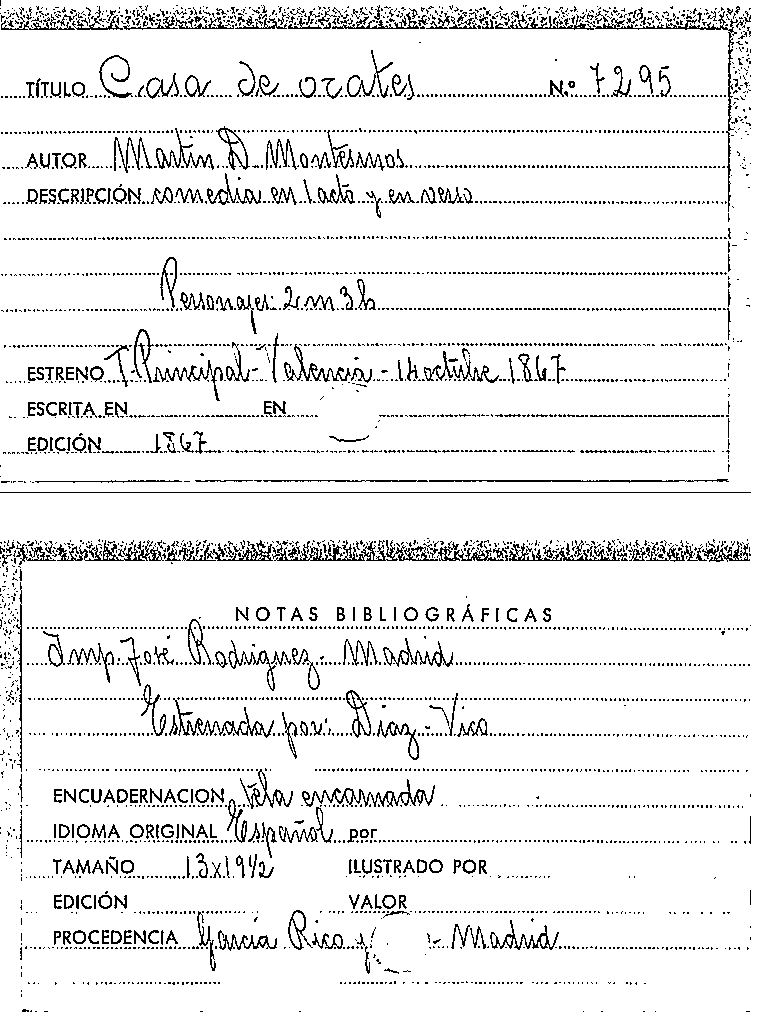 TÍTULO Casa de orates N.º 7295
AUTOR Martin D Montesinos
DESCRIPCIÓN comedia en 1 acto y en verso
Personajes: 2 m 3 h
ESTRENO T. Principal - Valencia - 14 octubre 1867
ESCRITA EN EN
EDICIÓN 1867
NOTAS BIBLIOGRÁFICAS
Imp. José Rodriguez. Madrid
Estrenada por: Diaz - Vico
ENCUADERNACION tela encarnada
IDIOMA ORIGINAL Español por
TAMAÑO 13x19 1/2 ILUSTRADO POR
EDICIÓN VALOR
PROCEDENCIA García Rico y - Madrid